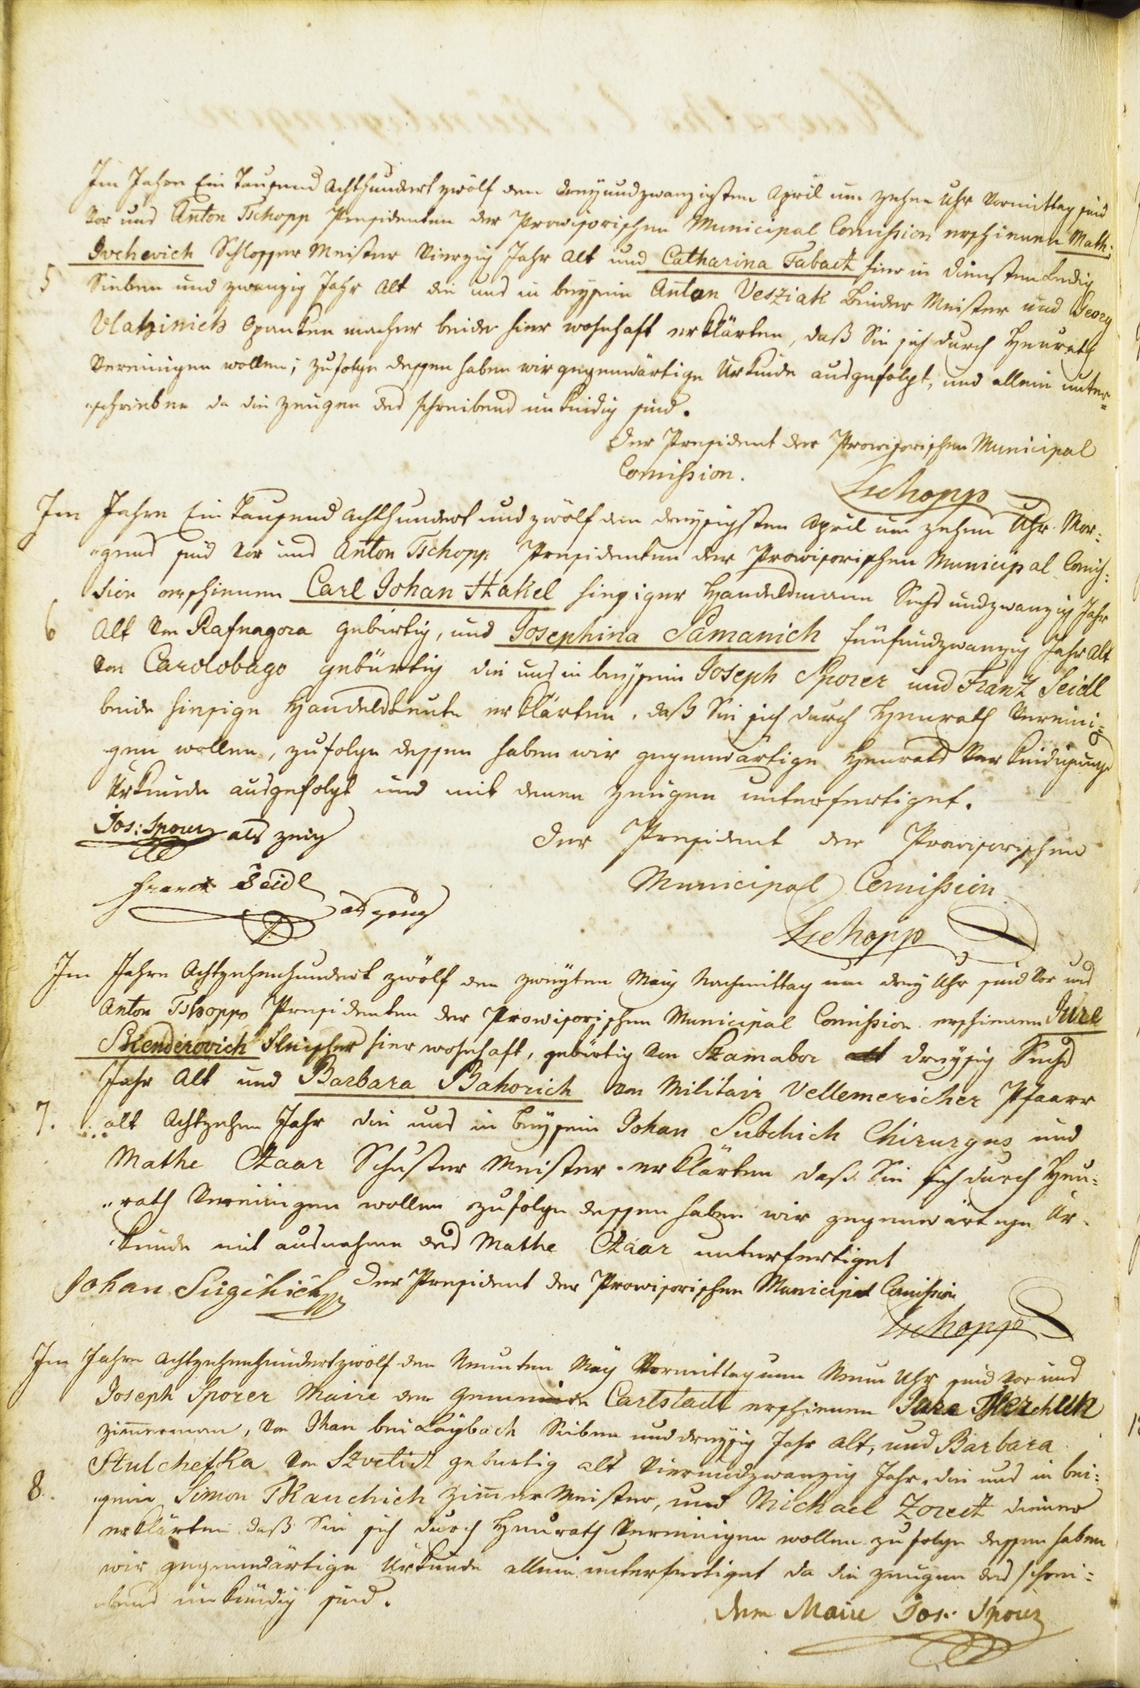 Im Jahre Ein Tausend Achthundert zwölf den dreyundzwanzigsten April um zehen Uhr Vormittag sind
Vor uns Anton Tschopp Presidenten der Provisorischen Municipal Comission erschienen Math:
Ivchevich Schlosser Meister Vierzig Jahr Alt und Catharina Tabact hier in diensten Ledig
5 Sieben und zwanzig Jahr Alt die uns in beysein Anton Vesziak Binder Meister und Georg
Vlatzinich Opanken macher beide hier wohnhaft erklärten, daß Sie sich durch Heurath
Vereinigen wollen; zufolge dessen haben wir gegenwärtige Urkunde ausgefolgt, und allein unter-
schrieben da die zeugen des schreibens unkündig sind.
Der President der Provisorischen Municipal
Comission.
Tschopp
Im Jahre Ein Tausend Achthundert und zwölf den dreysigsten April um zehen Uhr Mor-
gens sind Vor uns Anton Tschopp Presidenten der Provisorischen Municipal Comis-
sion erschienen Carl Johan Hakel hiesiger Handelsmann Sechs undzwanzig Jahr
6 Alt Von Rafnagora gebürtig, und Josephina Samanich fünfundzwanzig Jahr Alt
Von Carolobago gebürtig die uns in beysein Joseph Sporer und Franz Seidl
beide hiesige Handelsleute erklärten, daß Sie sich durch Heurath Vereini-
gen wollen, zufolge dessen haben wir gegenwärtige Heuraths Verkündigungs
Urkunde ausgefolgt und mit denen Zeugen unterfertiget.
Jos: Sporer als zeug
Der President der Provisorischen
Franz Seidl
als zeug
Municipal Comission
Tschopp
Im Jahre Achtzehenhundert zwölf den zweyten May Nachmittag um drey Uhr sind Vor uns
Anton Tschopp Presidenten der Provisorischen Municipal Comission erschienen Jure
Skenderovich Fleischer hier wohnhaft, gebürtig Von Szamabor dreysig Sechs
Jahr Alt und Barbara Bahorich Von Militair Vellemericher Pfaarr
7. alt Achtzehen Jahr die uns in beysein Johan Subchich Chirurgus und
Mathe Czaar Schuster Meister erklärten daß Sie sich durch Heu-
rath Vereinigen wollen zufolge dessen haben wir gegenwärtige Ur-
kunde mit ausnahme des Mathe Czaar unterfertiget
Johan Sugchich Der President der Provisorischen Municipal Comission
Tschopp
Im Jahre Achtzehenhundertzwölf den Neunten May Vormittag um Neun Uhr sind Vor uns
Joseph Sporer Maire der Gemeinde Carlstadt erschienen Jure
zimmerman, Von Ihan bei Laybach Sieben und dreysig Jahr alt, und Barbara
Stulchefka Von Szvetict gebürtig alt Vierundzwanzig Jahr, die uns in bei-
8. sein Simon Tkauchich zimmer Meister, und Michael Zorect diener
erklärten daß Sie sich durch Heurath Vereinigen wollen zufolge dessen haben
wir gegenwärtige Urkunde allein unterfertiget da die zeugen des schrei-
bens unkündig sind.
Der Maire Jos: Sporer